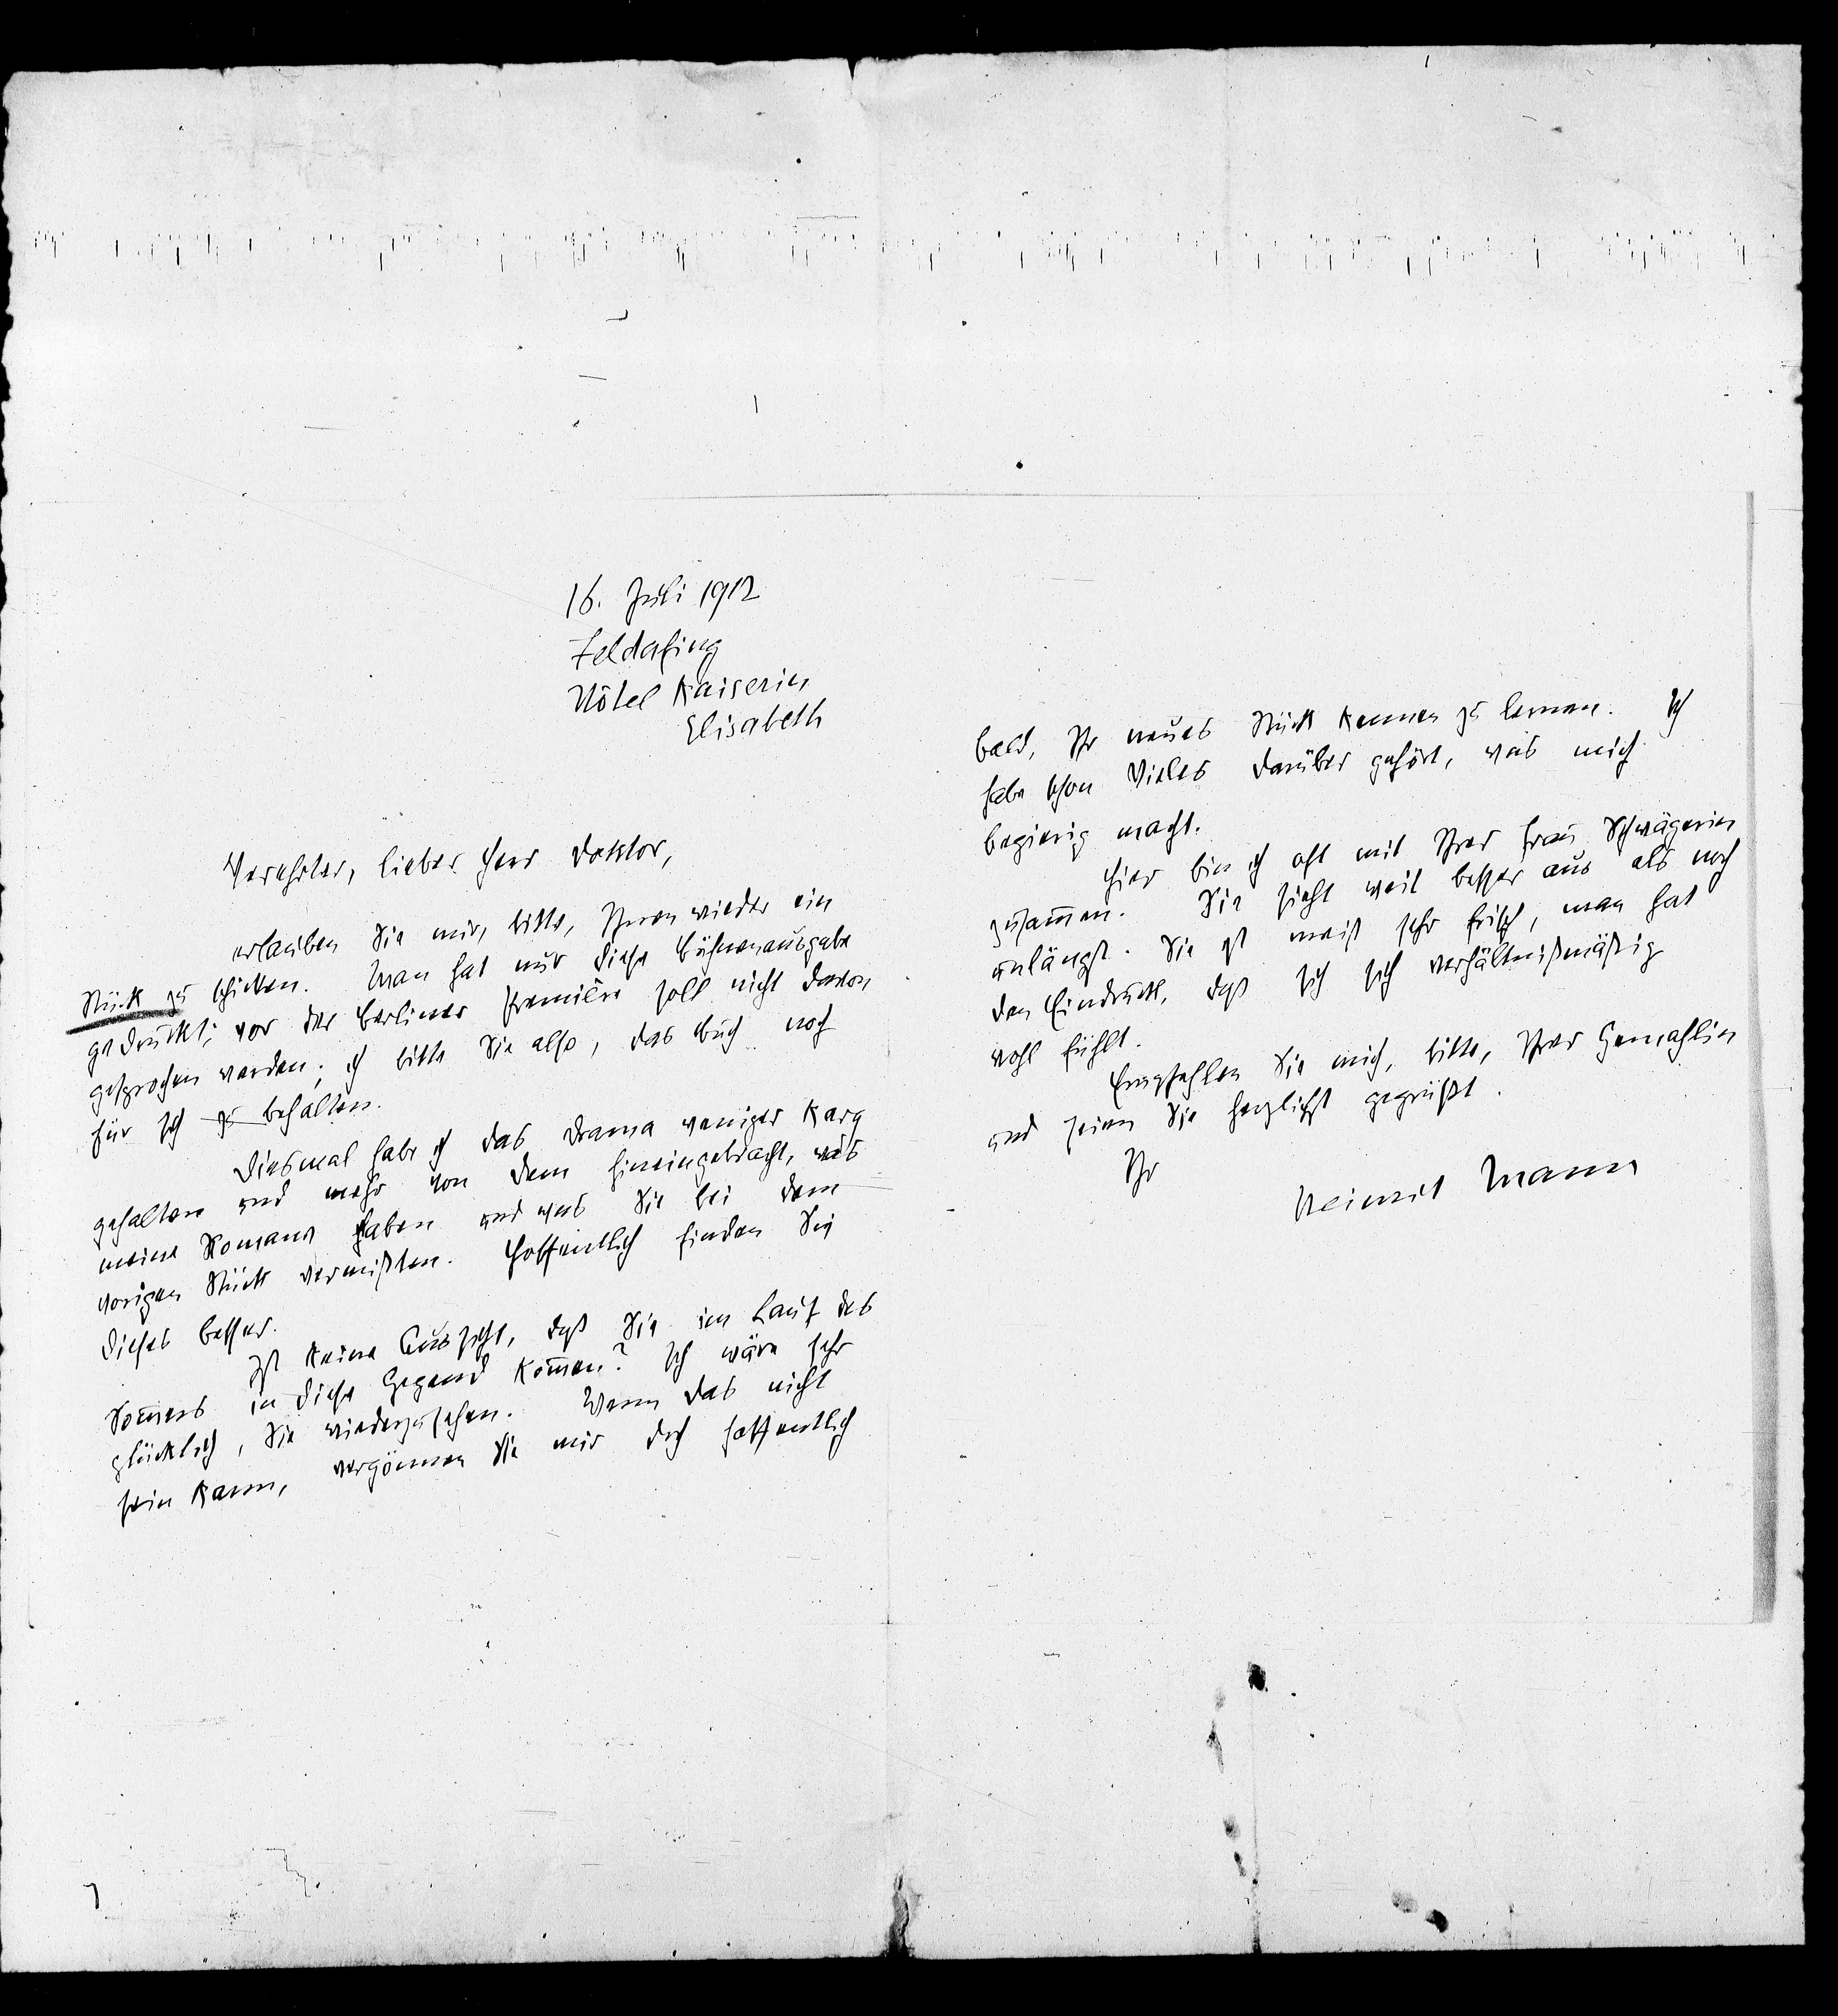 16. Juli 1912
Feldafing
Hôtel Kaiserin
Elisabeth
Verehrter, lieber Herr Doktor,
erlauben Sie mir, bitte, Ihnen wieder ein
Stück zu schicken. Man hat nur diese Bühnenausgabe
gedruckt; vor der Berliner Premiere soll nicht davon
gesprochen werden; ich bitte Sie also, das Buch noch
für sich zu behalten.
Diesmal habe ich das Drama weniger karg
gehalten und mehr von dem hineingebracht, was
meine Romane haben und was Sie bei dem
vorigen Stück vermißten. Hoffentlich finden Sie
dieses besser.
Ist keine Aussicht, daß Sie im Lauf des
Som̅ers in diese Gegend kom̅en? Ich wäre sehr
glücklich, Sie wiederzusehen. Wenn das nicht
sein kann, vergönnen Sie mir doch hoffentlich
bald, Ihr neues Stück kennen zu lernen. Ich
habe schon Vieles darüber gehört, was mich
begierig macht.
Hier bin ich oft mit Ihrer Frau Schwägerin
zusam̅en. Sie sieht weit besser aus als noch
unlängst. Sie ist meist sehr frisch, man hat
den Eindruck, daß sie sich verhältnißmäßig
wohl fühlt.
Empfehlen Sie mich, bitte, Ihrer Gemahlin
und seien Sie herzlichst gegrüßt.
Ihr
Heinrich Mann